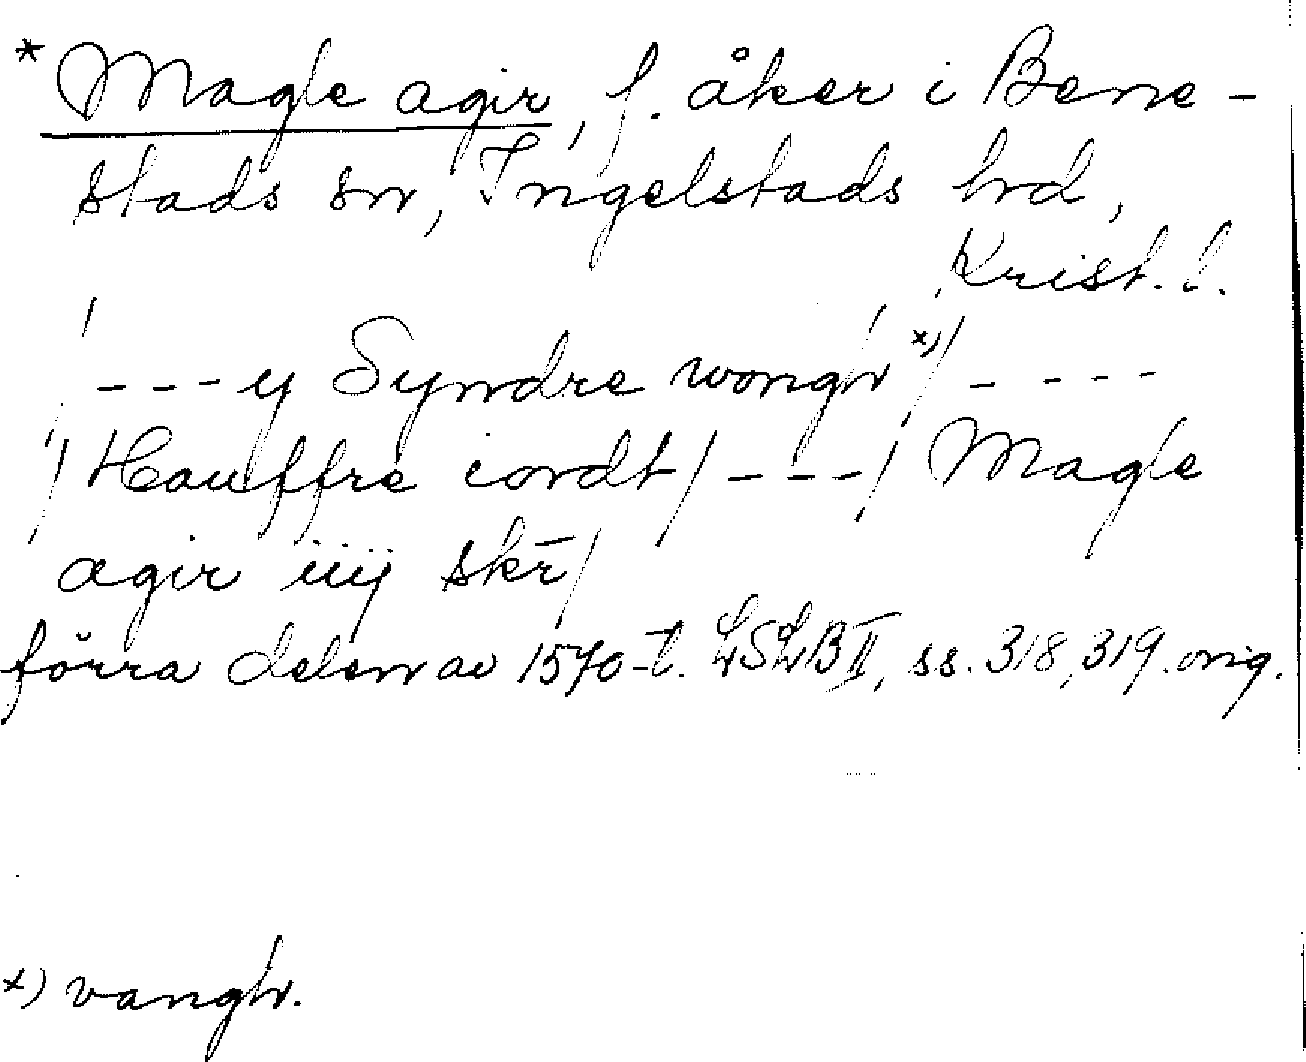 * Magle agir, f. åker i Bene-
stads sn, Ingelstads hd,
Krist. l.
/ - - - y Syndre wongh x) / - - - -
/ Hauffre iordt / - - - / Magle
agir iiij skr̄ /
förra delen av 1570-t. LSLB II, ss. 318, 319. orig.
x) vangh.